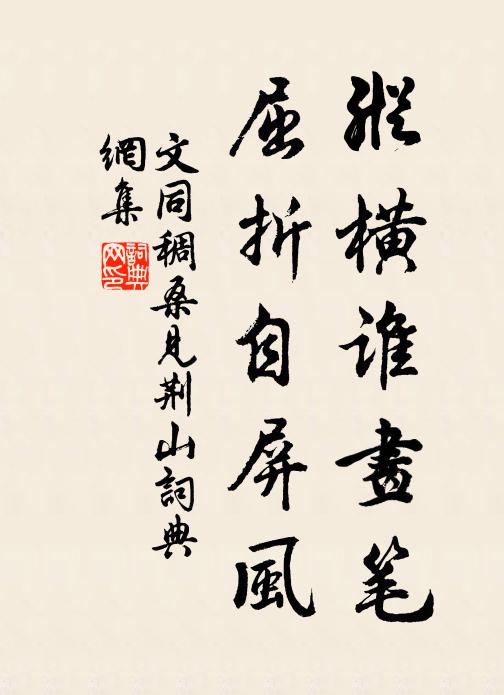 縱橫誰畫笔
屈折自屏風
文同稠桑見荆山詞典
網集
詞典
网印